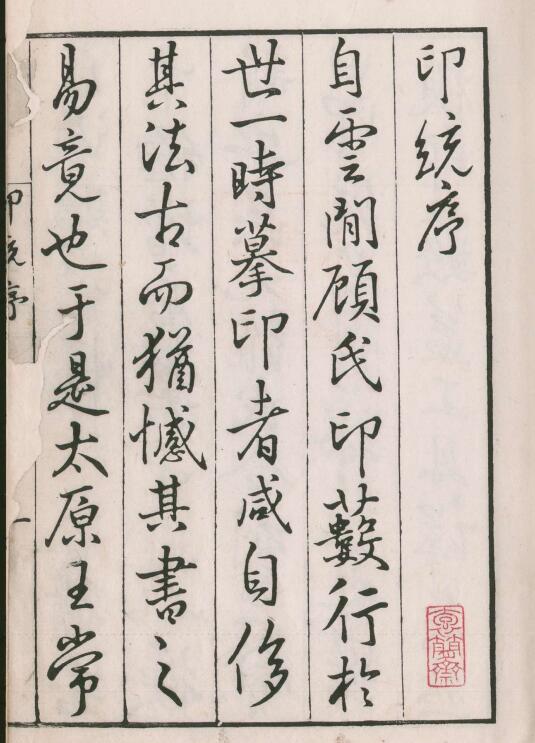 印統序
自雲間顧氏印藪行於
世一時摹印者咸自侈
其法古而猶憾其書之
易竟也于是太原王常
印統序
一